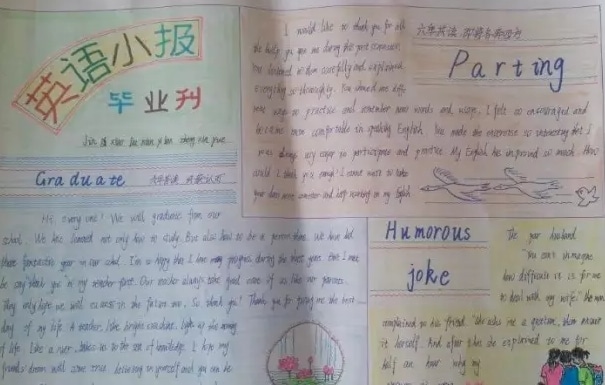 英语小报
毕业刊
Graduate
Hi, every one! We will graduate from our
school. We have learned not only how to study. But also how to be a person
these fantastic year in our school. I'm so happy that I have many progress during the
say thank you to my teacher first. Our teacher always take good care of us like our parents.
They only hope we will success in the future. So thank you! Thank you for giving me the best
day of my life A teacher, like bright sunshine, light up the
of life. like a river, takes us to the sea of knowledge. I hope my
friends dream will come true. believing in yourself and you can be
I would like to thank you for all
the help you gave me during this past semester.
You listened to them carefully and explained
everything so thoroughly. You showed me
new ways to practice and remember new words and usage. I felt so encouraged and
became more comfortable in speaking English. You made the exercise so interesting that I
was always very eager to participate and practice. My English has improved so much. How
could I thank you enough! I come next to take
your class next semester and keep working on my English
Parting
Humorous
joke
The poor husband
"You can't imagine
how difficult it is for me
to deal with my wife." the man
complained to his friend. "She asks me a question, then answer
it herself. And after that she explained to me for
half an hour why my